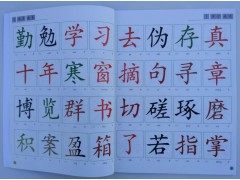 勤勉学习去伪存真
十年寒窗摘句寻章
博览群书切磋琢磨
积案盈箱了若指掌